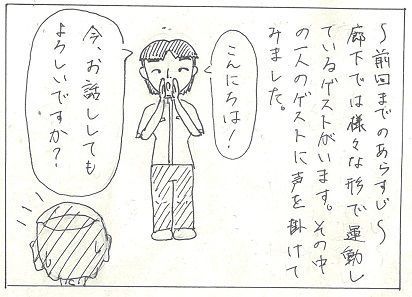 ～前回までのあらすじ～
廊下では様々な形で運動し
ているゲストがいます。その中
の一人のゲストに声を掛けて
みました。
こんにちは!
今、お話ししても
よろしいですか?